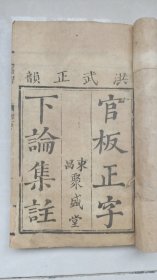 洪武正韻
官板正字
東昌聚盛堂
下論集註